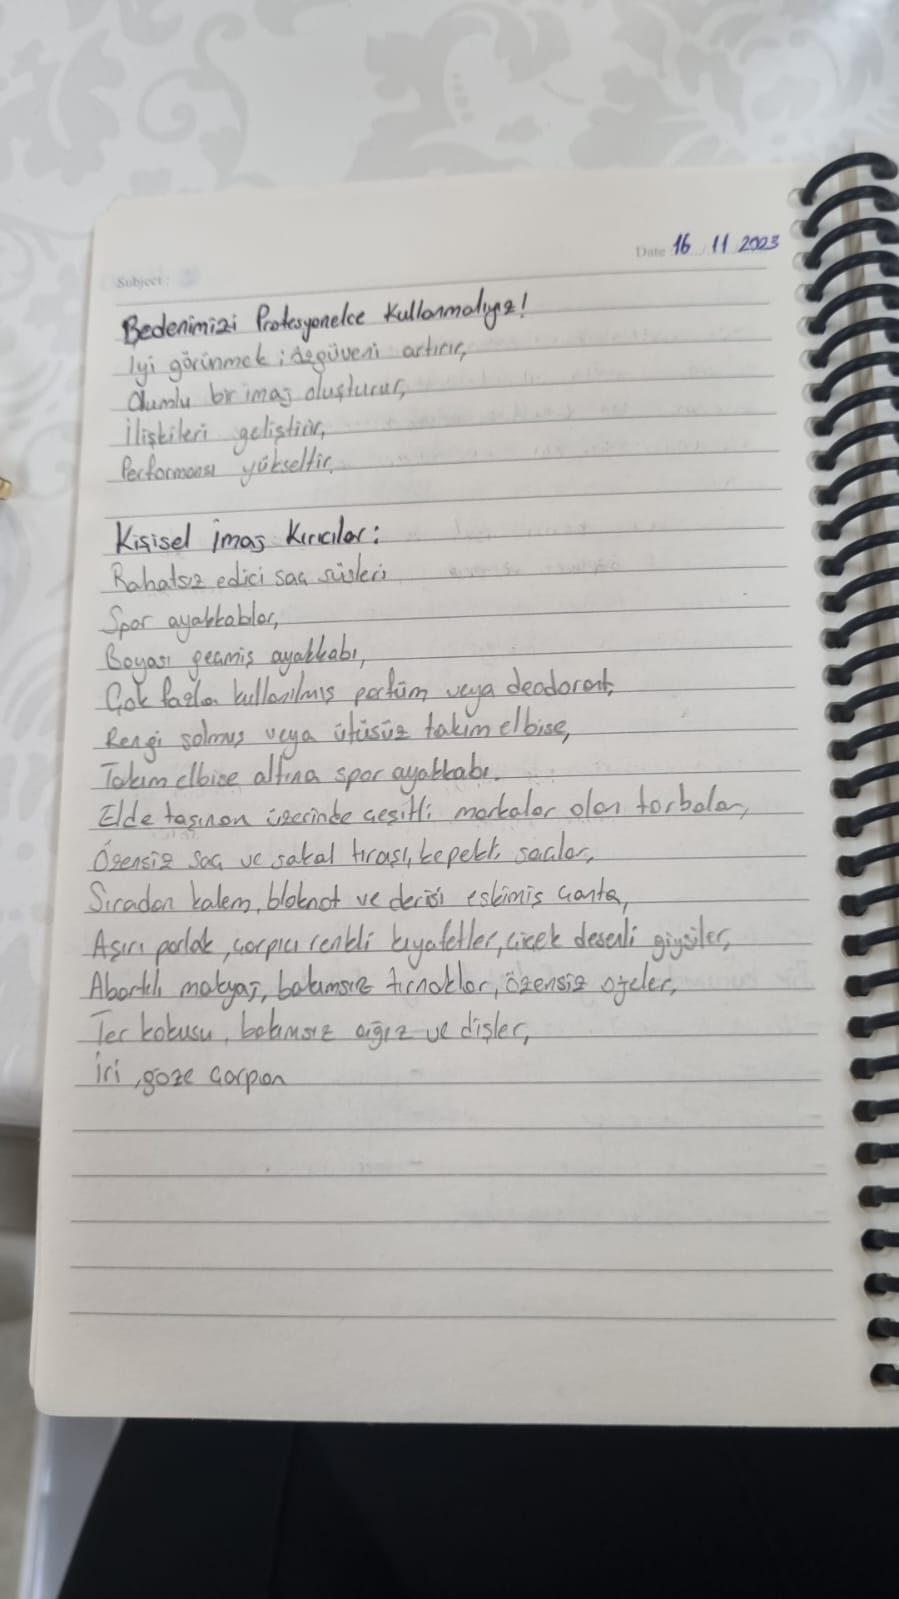 Subject:
Date 16 / 11 2023
Bedenimizi Profesyonelce Kullanmalıyız!
İyi görünmek; özgüveni artırır,
Olumlu bir imaj oluşturur,
İlişkileri geliştirir,
Performansı yükseltir.
Kişisel İmaj Kırıcılar:
Rahatsız edici saç süsleri
Spor ayakkabılar,
Boyası geçmiş ayakkabı,
Çok fazla kullanılmış parfüm veya deodorant,
Rengi solmuş veya ütüsüz takım elbise,
Takım elbise altına spor ayakkabı.
Elde taşınan üzerinde çeşitli markalar olan torbalar,
Özensiz saç ve sakal tıraşı, kepekli saçlar,
Sıradan kalem, bloknot ve derisi eskimiş çanta,
Aşırı parlak, çarpıcı renkli kıyafetler, çiçek desenli giysiler,
Abartılı makyaj, bakımsız tırnaklar, özensiz ojeler,
Ter kokusu, bakımsız ağız ve dişler,
İri, göze çarpan